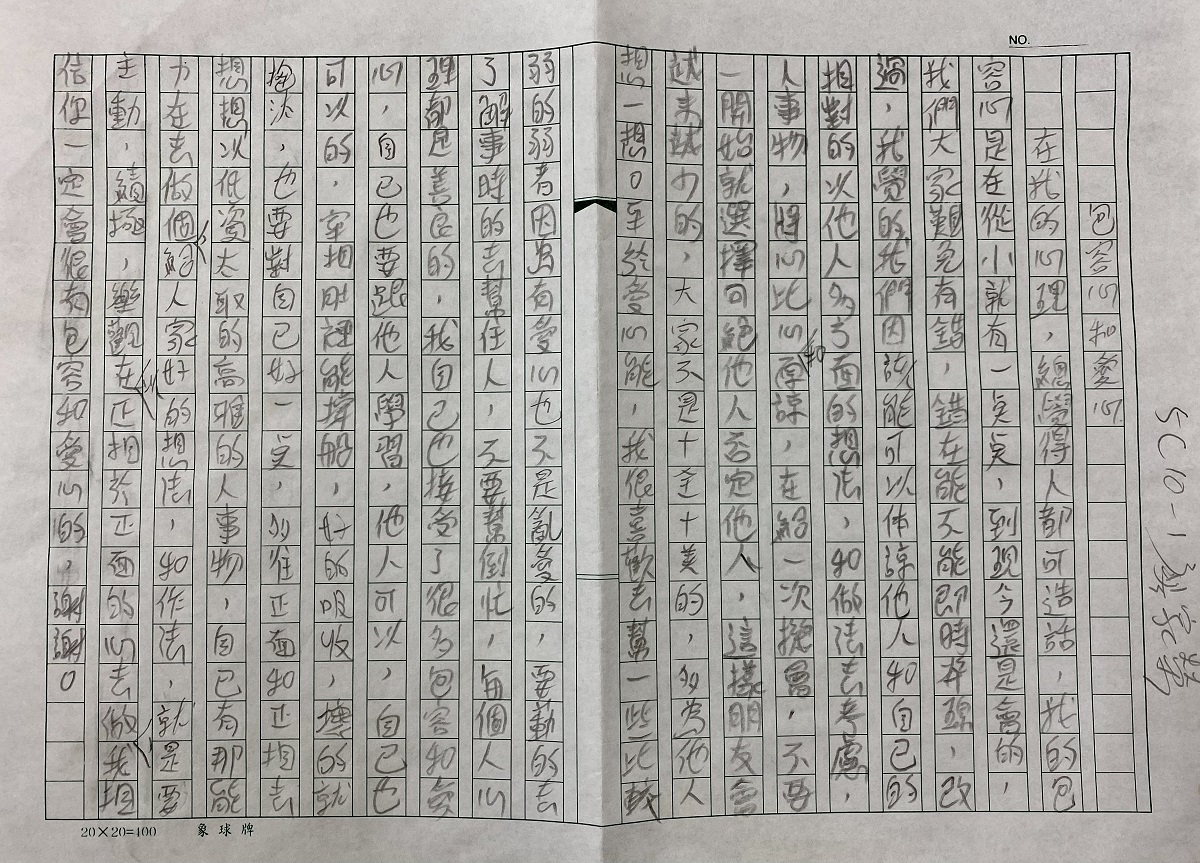 NO.
包容心和愛心
在我的心理，總覺得人都可造詣，我的包
容心是在從小就有，一点，到現今還是會的，
我們大家難免有錯，錯在能不能即時弄理，改
過，我覺的我們因該能可以体諒他人和自己的
相對的以他人多方面的想法，和做法去考慮，
人事物，將心比心和原諒，在給一次機會，不要
一開始就選擇可絕他人否定他人，這樣朋友會
越來越少的，大家不是十全十美的，多為他人
想一想。至於愛心能，我很喜歡去幫一些比較
弱的弱者因為有愛心也不是亂愛的，要勤的去
了解事時的去幫住人，不要幫倒忙，每個人心
理都是善良的，我自己也接受了很多包容和愛
心，自己也要跟他人學習，他人可以，自己也
可以的，宰相肚裡能撐船，好的吸收，壞的就
掏汰，也要對自己好一点，多往正面和正想去
想想以低姿太取的高雅的人，事物，自己有那能
力在去做個給人家好的想法，和作法，就是要
主動，績極，樂觀在和正想於正面的心去做我相
信你一定會很有包容和愛心的，謝謝。
SC10-1
20×20=400 象球牌